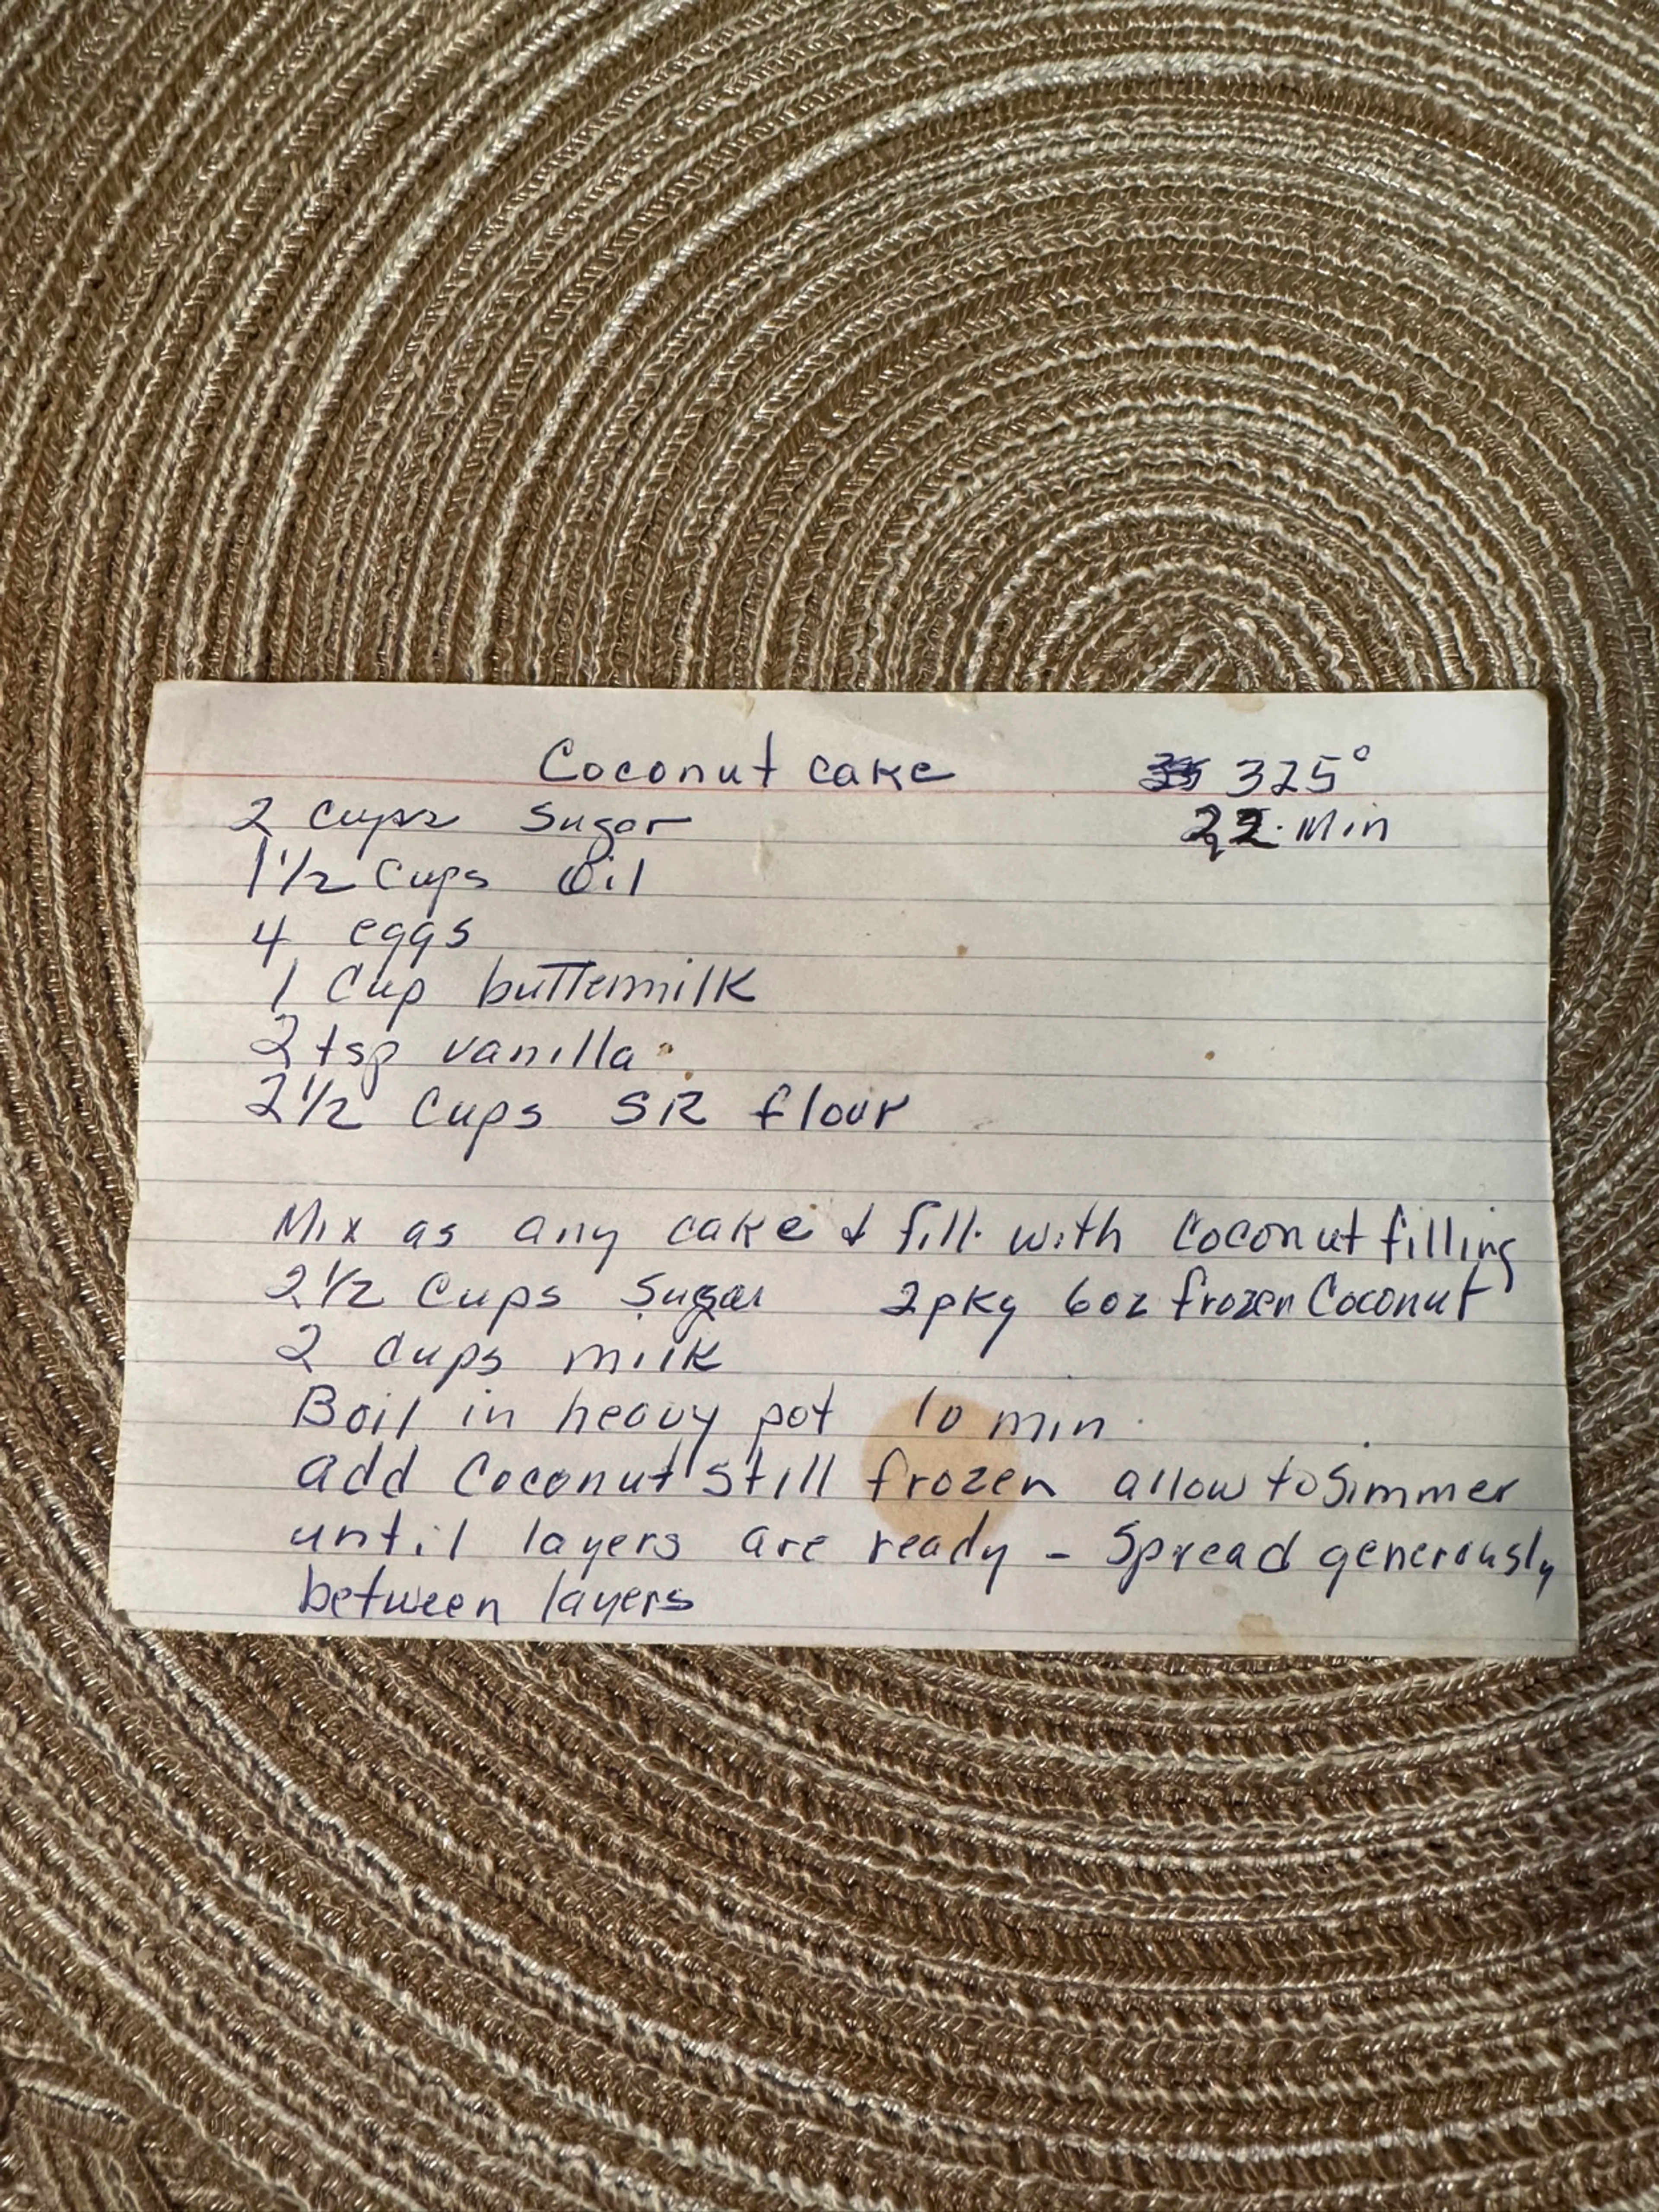 Coconut cake 325°
2 cups sugar 22 Min
1 1/2 Cups Oil
4 eggs
1 Cup buttermilk
2 tsp vanilla
2 1/2 Cups SR flour
Mix as any cake & fill with Coconut filling
2 1/2 Cups Sugar 2 pkg 6 oz frozen Coconut
2 Cups milk
Boil in heavy pot 10 min
add Coconut still frozen allow to Simmer
until layers are ready - Spread generously
between layers